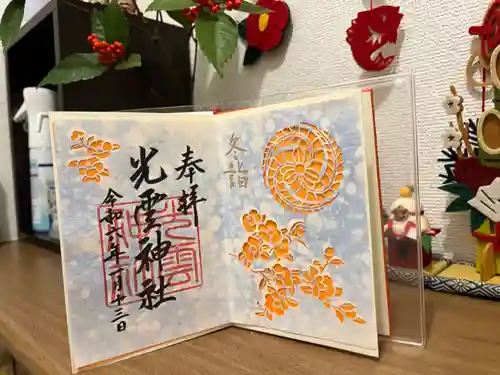 冬詣
奉拝
光雲神社
令和六年一月十三日